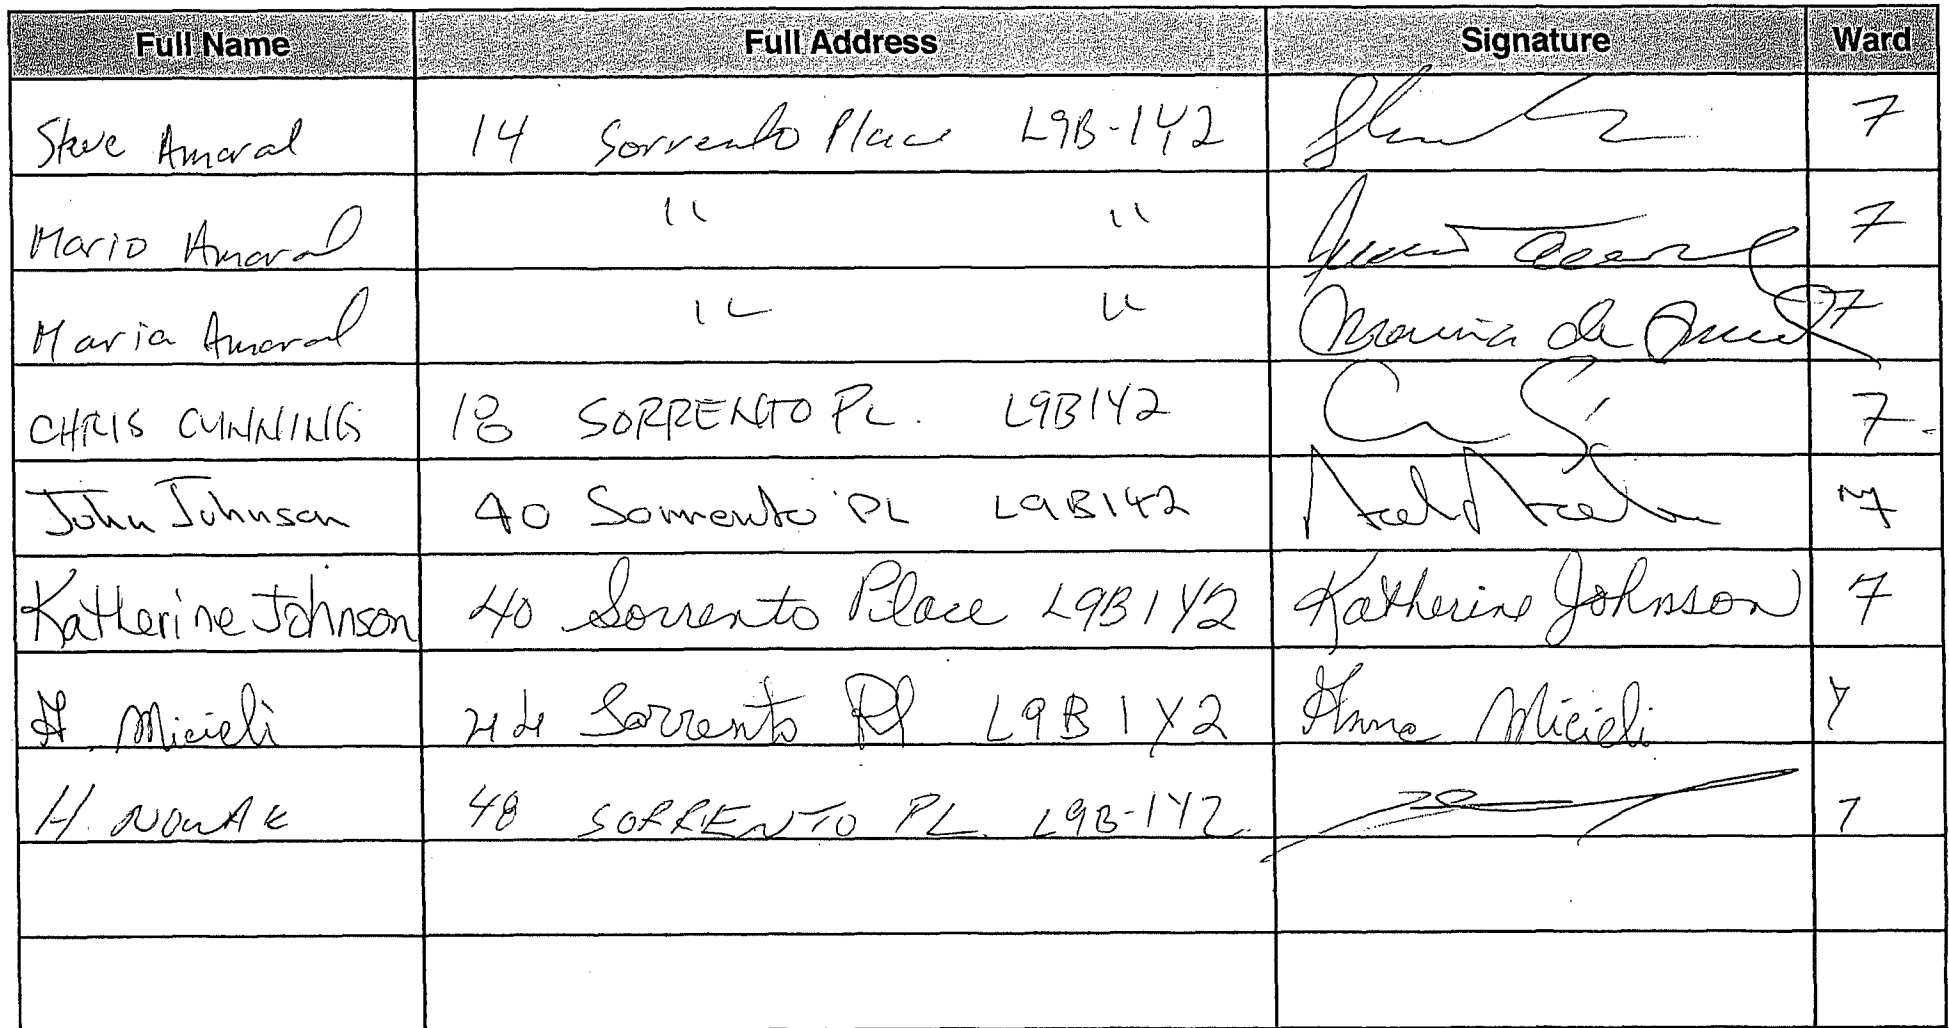 Full Name Full Address Signature Ward
Steve Amaral 14 Sorrento Place L9B-1Y2 7
Mario Amaral " " 7
Maria Amaral " " Maria de 7
CHRIS CUNNING 18 SORRENTO PL. L9B1Y2 7
John Johnson 40 Sorrento PL L9B1Y2 7
Katherine Johnson 40 Sorrento Place L9B1Y2 Katherine Johnson 7
A. Micieli 44 Sorrento Pl L9B 1Y2 Anna Micieli 7
H. NOWAK 48 SORRENTO PL. L9B-1Y2 7